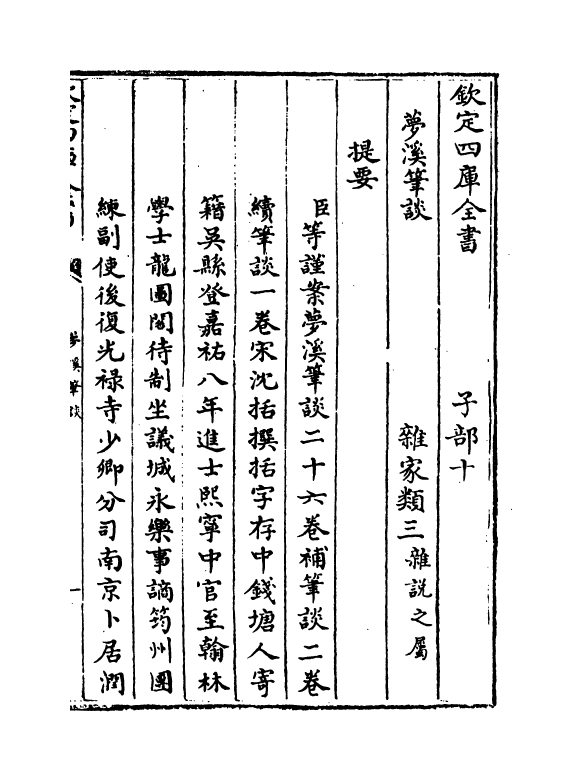 欽定四庫全書　子部十
夢溪筆談　雜家類三雜說之屬
提要
臣等謹案夢溪筆談二十六卷補筆談二卷
續筆談一卷宋沈括撰括字存中錢塘人寄
籍吳縣登嘉祐八年進士熙寧中官至翰林
學士龍圖閣待制坐議城永樂事謫筠州團
練副使後復光祿寺少卿分司南京卜居潤
夢溪筆談　一